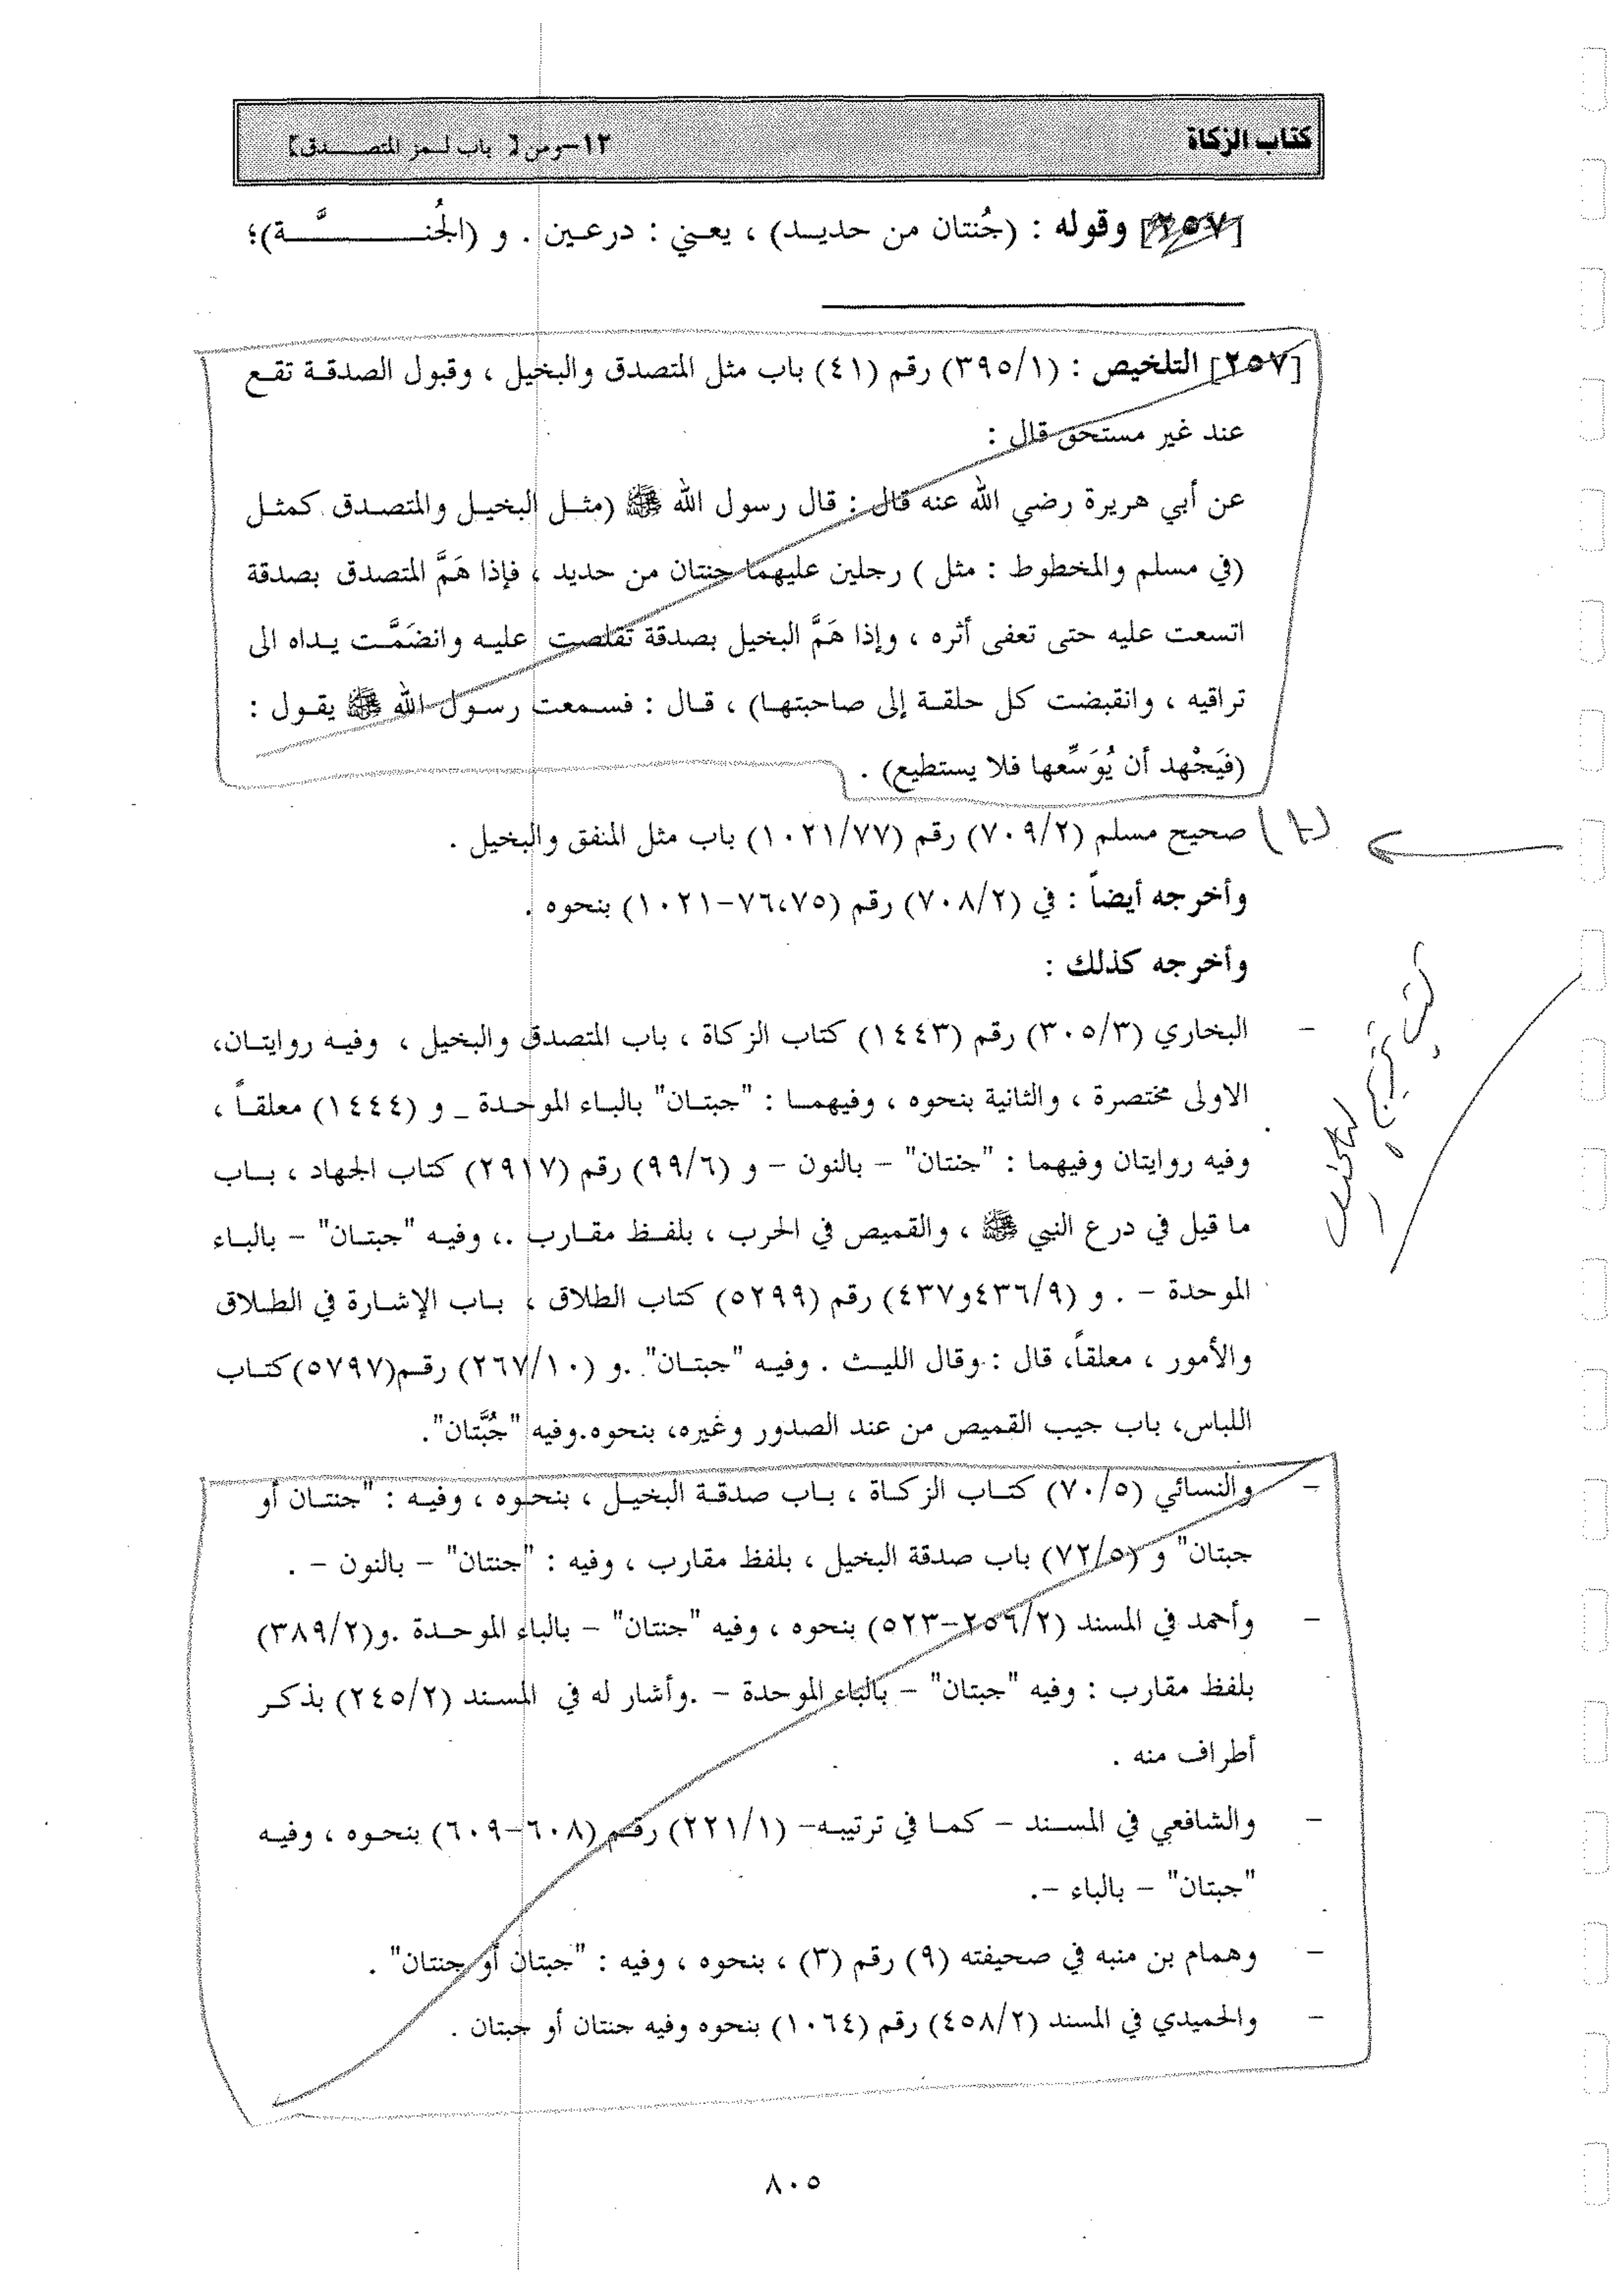 كتاب الزكاة
١٢-ومن [ باب لـمز المتصـدق]
[٢٥٧] وقوله : (جُنتان من حديـد) ، يعـني : درعـين . و (الجُنـــَّـــة)؛
[٢٥٧] التلخيص : (٣٩٥/١) رقم (٤١) باب مثل المتصدق والبخيل ، وقبول الصدقـة تقـع
عند غير مستحق قال :
عن أبي هريرة رضي الله عنه قال : قال رسول الله ﷺ (مثـل البخيـل والمتصـدق كمثـل
(في مسلم والمخطوط : مثل ) رجلين عليهما جنتان من حديد ، فإذا هَمَّ المتصدق بصدقة
اتسعت عليه حتى تعفى أثره ، وإذا هَمَّ البخيل بصدقة تقلصت عليـه وانضَمَّـت يـداه الى
تراقيه ، وانقبضت كل حلقـة إلى صاحبتهـا) ، قـال : فسـمعت رسـول الله ﷺ يقـول :
(فَيَجْهد أن يُوَسِّعها فلا يستطيع) .
صحيح مسلم (٧٠٩/٢) رقم (١٠٢١/٧٧) باب مثل المنفق والبخيل .
وأخرجه أيضاً : في (٧٠٨/٢) رقم (٧٦،٧٥-١٠٢١) بنحوه .
وأخرجه كذلك :
- البخاري (٣٠٥/٣) رقم (١٤٤٣) كتاب الزكاة ، باب المتصدق والبخيل ، وفيـه روايتـان،
الاولى مختصرة ، والثانية بنحوه ، وفيهمـا : "جبتـان" بالبـاء الموحـدة _ و (١٤٤٤) معلقـاً ،
وفيه روايتان وفيهما : "جنتان" - بالنون - و (٩٩/٦) رقم (٢٩١٧) كتاب الجهاد ، بـاب
ما قيل في درع النبي ﷺ ، والقميص في الحرب ، بلفـظ مقـارب .، وفيـه "جبتـان" - بالبـاء
الموحدة - . و (٤٣٦/٩و٤٣٧) رقم (٥٢٩٩) كتاب الطلاق ، بـاب الإشـارة في الطـلاق
والأمور ، معلقاً، قال : وقال الليـث . وفيـه "جبتـان" .و (٢٦٧/١٠) رقـم(٥٧٩٧)كتـاب
اللباس، باب جيب القميص من عند الصدور وغيره، بنحوه.وفيه "جُبَّتان".
- والنسائي (٧٠/٥) كتـاب الزكـاة ، بـاب صدقـة البخيـل ، بنحـوه ، وفيـه : "جنتـان أو
جبتان" و (٧٢/٥) باب صدقة البخيل ، بلفظ مقارب ، وفيه : "جنتان" - بالنون - .
- وأحمد في المسند (٢٥٦/٢-٥٢٣) بنحوه ، وفيه "جنتان" - بالباء الموحـدة .و(٣٨٩/٢)
بلفظ مقارب : وفيه "جبتان" - بالباء الموحدة - .وأشار له في المسند (٢٤٥/٢) بذكـر
أطراف منه .
- والشافعي في المسـند - كمـا في ترتيبـه- (٢٢١/١) رقـم (٦٠٨-٦٠٩) بنحـوه ، وفيـه
"جبتان" - بالباء -.
- وهمام بن منبه في صحيفته (٩) رقم (٣) ، بنحوه ، وفيه : "جبتان أو جنتان" .
- والحميدي في المسند (٤٥٨/٢) رقم (١٠٦٤) بنحوه وفيه جنتان أو جبتان .
٨٠٥